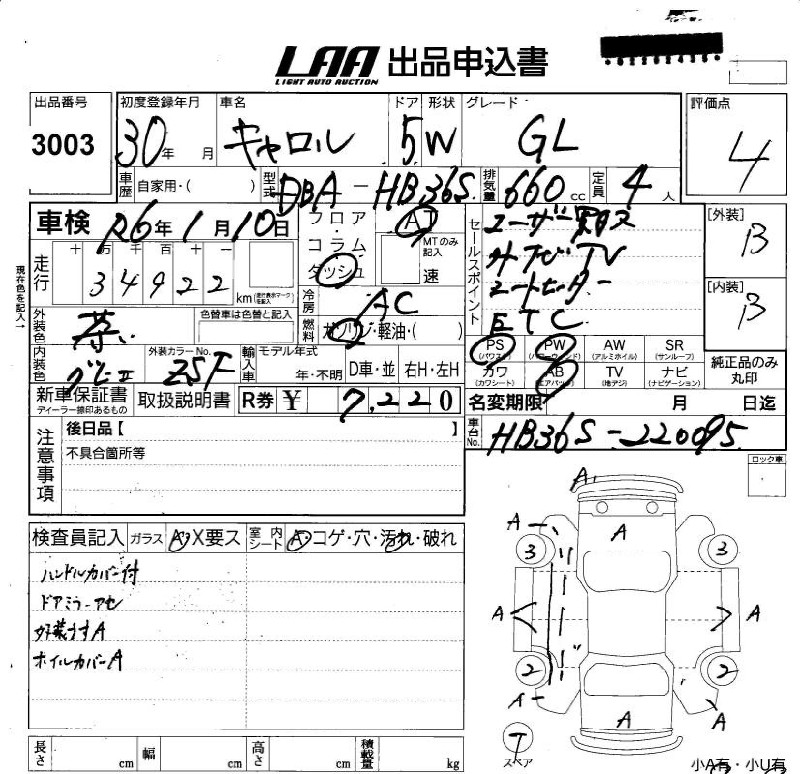 LAA 出品申込書
LIGHT AUTO AUCTION
出品番号 初度登録年月 車名 ドア 形状 グレード 評価点
3003 30年 月 キャロル 5 W GL 4
車歴 自家用・( ) 型式 DBA-HB36S 排気量 660cc 定員 4人
車検 R6年 1月 10日 フロア・コラム・ダッシュ AT MTのみ記入 速
セールスポイント ユーザー買取ス
外ナビTV
シートヒーター
ETC
[外装] B
[内装] B
現在色を記入→
走行 十 万 千 百 十 一
34922 km (走行表示マークを記入)
冷房 AC
外装色 茶 色替車は色替と記入
燃料 ガソリン・軽油・( )
内装色 グレー 外装カラーNo. ZSF 輸入車 モデル年式 年・不明 D車・並 右H・左H
PS (パワステ) PW (パワーウィンド) AW (アルミホイル) SR (サンルーフ)
カワ (カワシート) AB (エアバッグ) TV (地デジ) ナビ (ナビゲーション)
純正品のみ丸印
新車保証書 ディーラー捺印あるもの 取扱説明書 R券 ¥ 7,220
名変期限 月 日迄
注意事項 後日品【 】
不具合箇所等
車台No. HB36S-220095
ロック車
検査員記入 ガラス A・X要ス 室内シート A・コゲ・穴・汚れ・破れ
ハンドルカバー付
ドアミラーアセ
ホイルカバーA
A A A 3 3 A A 2 2 A A A
T スペア
小A有・小U有
長さ cm 幅 cm 高さ cm 積載量 kg